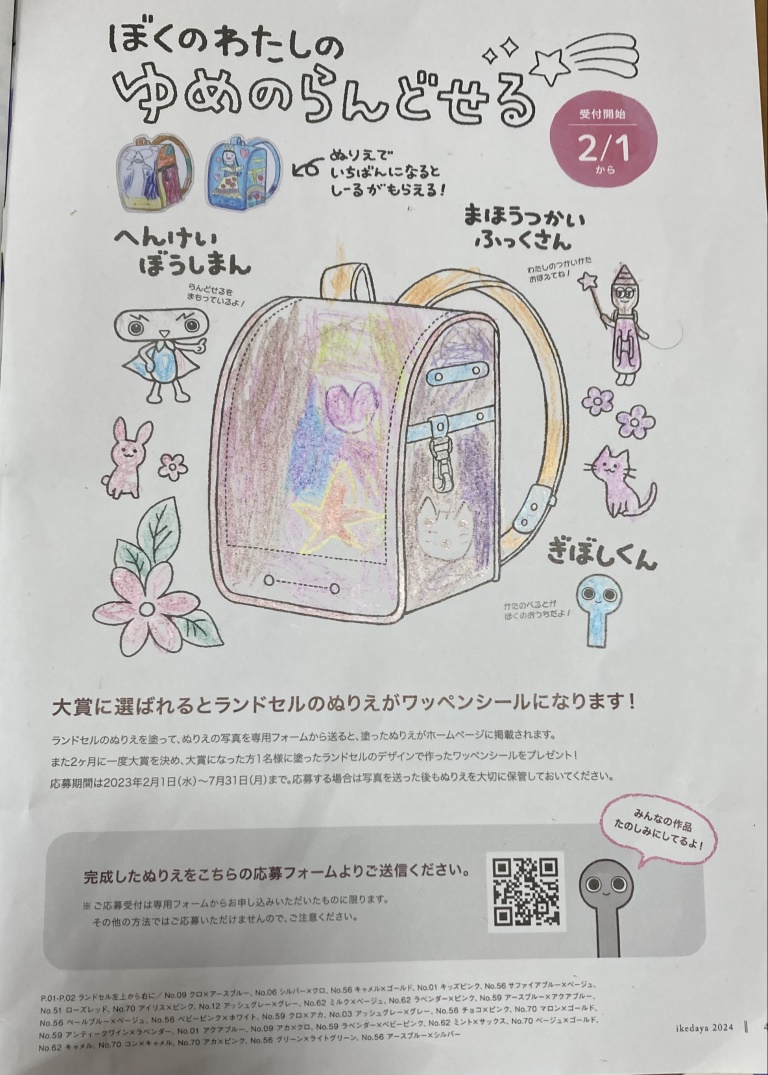 ぼくのわたしの
ゆめのらんどせる
受付開始
2/1
から
ぬりえで
いちばんになると
しーるがもらえる！
へんけい
ぼうしまん
らんどせるを
まもっているよ！
まほうつかい
ふっくさん
わたしのつかいかた
おぼえてね！
ぎぼしくん
かたのべるとが
ぼくのおうちだよ！
大賞に選ばれるとランドセルのぬりえがワッペンシールになります！
ランドセルのぬりえを塗って、ぬりえの写真を専用フォームから送ると、塗ったぬりえがホームページに掲載されます。
また2ヶ月に一度大賞を決め、大賞になった方1名様に塗ったランドセルのデザインで作ったワッペンシールをプレゼント！
応募期間は2023年2月1日(水)〜7月31日(月)まで。応募する場合は写真を送った後もぬりえを大切に保管しておいてください。
みんなの作品
たのしみにしてるよ！
完成したぬりえをこちらの応募フォームよりご送信ください。
※ご応募受付は専用フォームからお申し込みいただいたものに限ります。
その他の方法ではご応募いただけませんので、ご注意ください。
P.01-P.02 ランドセル左上から右に／No.09 クロ×アースブルー、No.06 シルバー×クロ、No.56 キャメル×ゴールド、No.01 キッズピンク、No.56 サファイアブルー×ベージュ、
No.51 ローズレッド、No.70 アイリス×ピンク、No.12 アッシュグレー×グレー、No.62 ミルク×ベージュ、No.62 ラベンダー×ピンク、No.59 アースブルー×アクアブルー、
No.56 ペールブルー×ベージュ、No.56 ベビーピンク×ホワイト、No.59 クロ×アカ、No.03 アッシュグレー×グレー、No.56 チョコ×ピンク、No.70 マロン×ゴールド、
No.59 アンティークワイン×ラベンダー、No.01 アクアブルー、No.09 アカ×クロ、No.59 ラベンダー×ベビーピンク、No.62 ミント×サックス、No.70 ベージュ×ゴールド、
No.62 キャメル、No.70 コン×キャメル、No.70 アカ×ピンク、No.56 グリーン×ライトグリーン、No.56 アースブルー×シルバー
ikedaya 2024